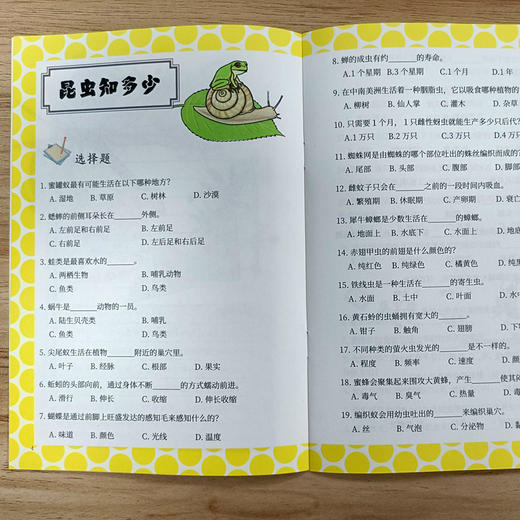 昆虫知多少
选择题
1. 蜜罐蚁最有可能生活在以下哪种地方?
A. 湿地 B. 草原 C. 树林 D. 沙漠
2. 蟋蟀的前侧耳朵长在______外侧。
A. 左前足和右前足 B. 左前足
C. 右前足 D. 左后足和右后足
3. 蛙类是最喜欢水的______。
A. 两栖生物 B. 哺乳动物
C. 鱼类 D. 鸟类
4. 蜗牛是______动物的一员。
A. 陆生贝壳类 B. 哺乳
C. 鱼类 D. 鸟类
5. 尖尾蚁生活在植物______附近的巢穴里。
A. 叶子 B. 经脉 C. 根部 D. 果实
6. 蚯蚓的头部向前，通过身体不断______的方式蠕动前进。
A. 滑行 B. 伸长 C. 收缩 D. 伸长收缩
7. 蝴蝶是通过前脚上旺盛发达的感知毛来感知什么的?
A. 味道 B. 颜色 C. 光线 D. 温度
8. 蝉的成虫有约______的寿命。
A.1 个星期 B.3 个星期 C.1 个月 D.1 年
9. 在中南美洲生活着一种胭脂虫，它以吸食哪种植物的
A. 柳树 B. 仙人掌 C. 灌木 D. 杂草
10. 只需要 1 个月，1 只雌性蚜虫就能生产多少只后代?
A.1 万只 B.2 万只 C.3 万只 D.4 万
11. 蜘蛛网是由蜘蛛的哪个部位吐出的蛛丝编织而成的?
A. 尾部 B. 头部 C. 腹部 D. 脚部
12. 雌蚊子只会在______之前的一段时间内吸血。
A. 繁殖期 B. 休眠期 C. 产卵期 D. 衰亡
13. 犀牛蟑螂是少数生活在______的蟑螂。
A. 地面上 B. 水底下 C. 水面上 D. 地底
14. 赤翅甲虫的前翅是什么颜色的?
A. 纯红色 B. 纯绿色 C. 橘黄色 D. 纯黑
15. 铁线虫是一种生活在______的寄生虫。
A. 水面 B. 土中 C. 叶面 D. 水中
16. 黄石蛉的虫蛹拥有宽大的______。
A. 钳子 B. 触角 C. 翅膀 D. 下颚
17. 不同种类的萤火虫发光的______是不一样的。
A. 程度 B. 频率 C. 速度 D. 颜
18. 蜜蜂会聚集起来围攻大黄蜂，产生______使其
A. 毒气 B. 臭气 C. 热量 D. 毒
19. 编织蚁会用幼虫吐出的______来编织巢穴。
A. 丝 B. 气泡 C. 分泌物 D. 黏